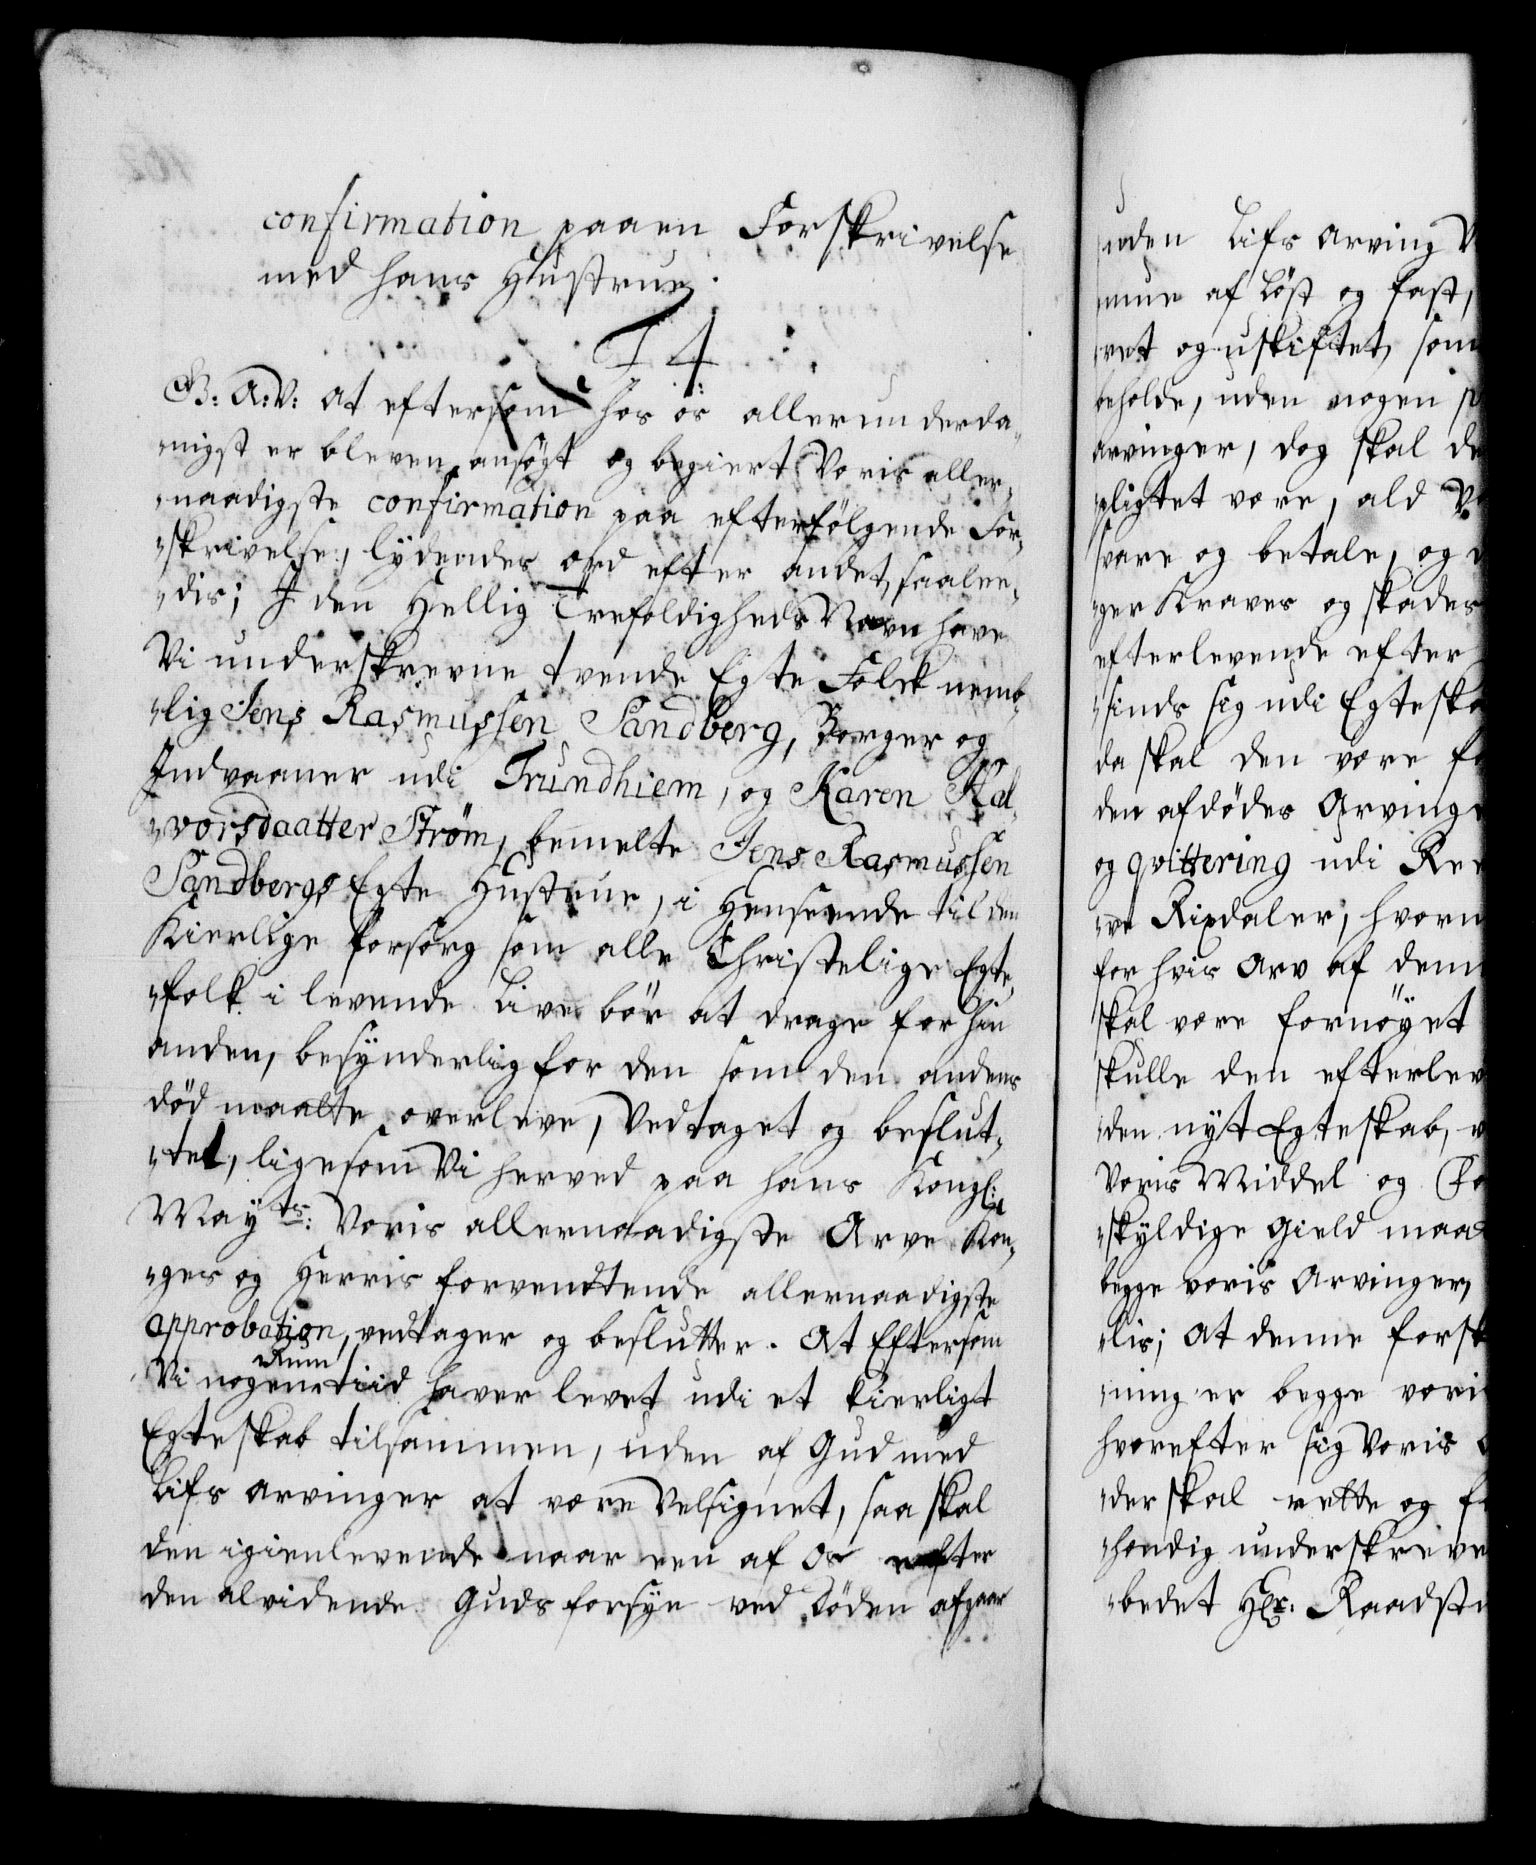 confirmation paa en Forskrivelse
med hans Hustrue.
F 4
G: A: V: At eftersom hos os allerunderda-
nigst er bleven ansøgt og begiert Voris aller-
naadigste confirmation paa efterfølgende For-
skrivelse, lÿdendes ord efter andet, saalee-
dis; J den Hellig Trefoldigheds Navn have
Vi underskrevne tvende Egte Folck nemb-
lig Jens Rasmussen Sandberg, Borger og
Indvaaner udi Trundhiem, og Karen Hal-
vorsdaatter Strøm, bemelte Jens Rasmussen
Sandbergs Egte Hustrue, i Henseende til den
Kierlige forsorg som alle Christelige Egte-
folk i levende Live bør at drage for hin
anden, besÿnderlig for den som den andens
død maatte overleve, Vedtaget og beslut-
tet, ligesom Vi herved paa hans Kongl:
Mayts: Voris allernaadigste Arve Kon-
ges og Herris forventende allernaadigste
approbation, vedtager og beslutter. At Eftersom
Rum
Vi nogen tiid haver levet udi et kierligt
Egteskab tilsammen, uden af Gud med
Lifs arvinger at være Velsignet, saa skal
den igienlevende naar een af os efter
den alvidende Guds forsyn ved Døden afgaar
uden Lifs Arving
mue af løst og fast,
vet og uskiftet, som
beholde, uden nogen
Arvinger, dog skal
pligtet være, ald
svare og betale, og
ger Kraver og skader
efterlevende efter
sinds sig udi Egteska
da skal den være
den afdødes Arvinge
og qvittering udi
ve Rixdaler, hvorm
for hvis Arv af dem
skal være fornøÿet
skulle den efterlev
den nÿt Egteskab,
Voris Middel og
skyldige Gield maa
begge voris Arvinger,
lis; At denne forsk
ning er begge vori
hvorefter sig Voris
der skal rette og
hendig underskreve
bedet Hr: Raadst